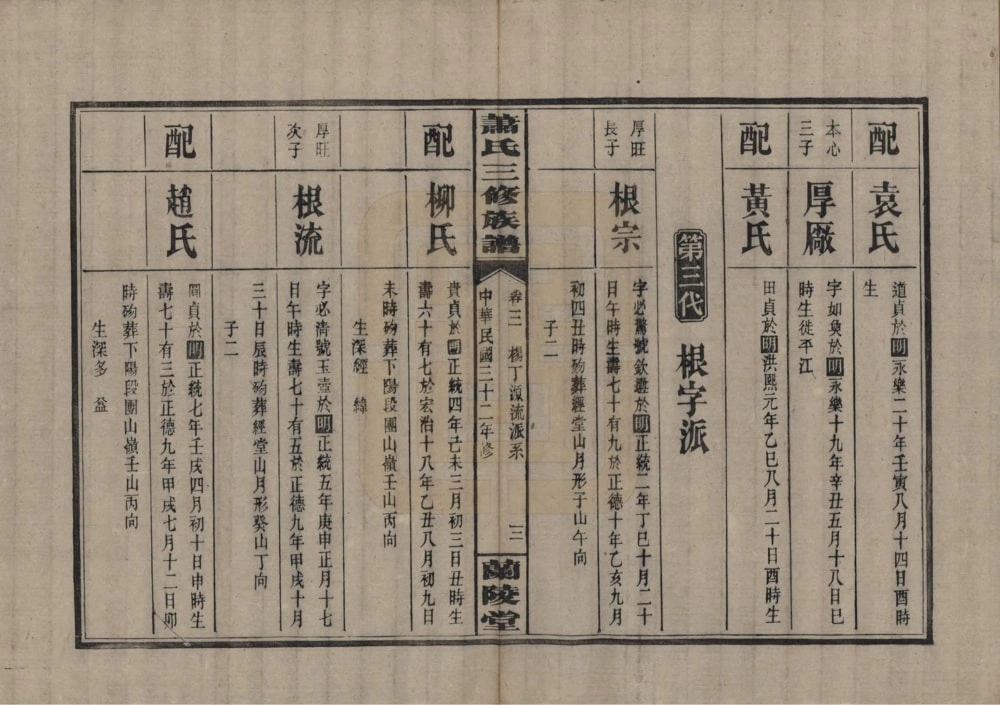 配
袁氏
道貞於明永樂二十年壬寅八月十四日酉時
生
本心
三子
厚廠
字如奐於明永樂十九年辛丑五月十八日巳
時生徙平江
配
黃氏
田貞於明洪熙元年乙巳八月二十日酉時生
第三代
根字派
厚旺
長子
根宗
字必鸞號欽叢於明正統二年丁巳十月二十
日午時生壽七十有九於正德十年乙亥九月
初四丑時歿葬經堂山月形子山午向
子二
蕭氏三修族譜
卷三 楊丁源流派系 三
中華民國三十二年修
蘭陵堂
配
柳氏
貴貞於明正統四年己未三月初三日丑時生
壽六十有七於宏治十八年乙丑八月初九日
未時歿葬下陽段團山嶺壬山丙向
生深經 緯
厚旺
次子
根流
字必淸號玉壺於明正統五年庚申正月十七
日午時生壽七十有五於正德九年甲戌十月
三十日辰時歿葬經堂山月形癸山丁向
子二
配
趙氏
圓貞於明正統七年壬戌四月初十日申時生
壽七十有三於正德九年甲戌七月十二日卯
時歿葬下陽段團山嶺壬山丙向
生深多 益